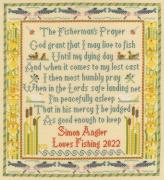 The Fisherman's Prayer
God grant that I may live to fish
Until my dying day
And when it comes to my last cast
I then most humbly pray
When in the Lords safe landing net
I'm peacefully asleep
That in his mercy I be judged
As good enough to keep
Simon Angler
Loves Fishing 2022